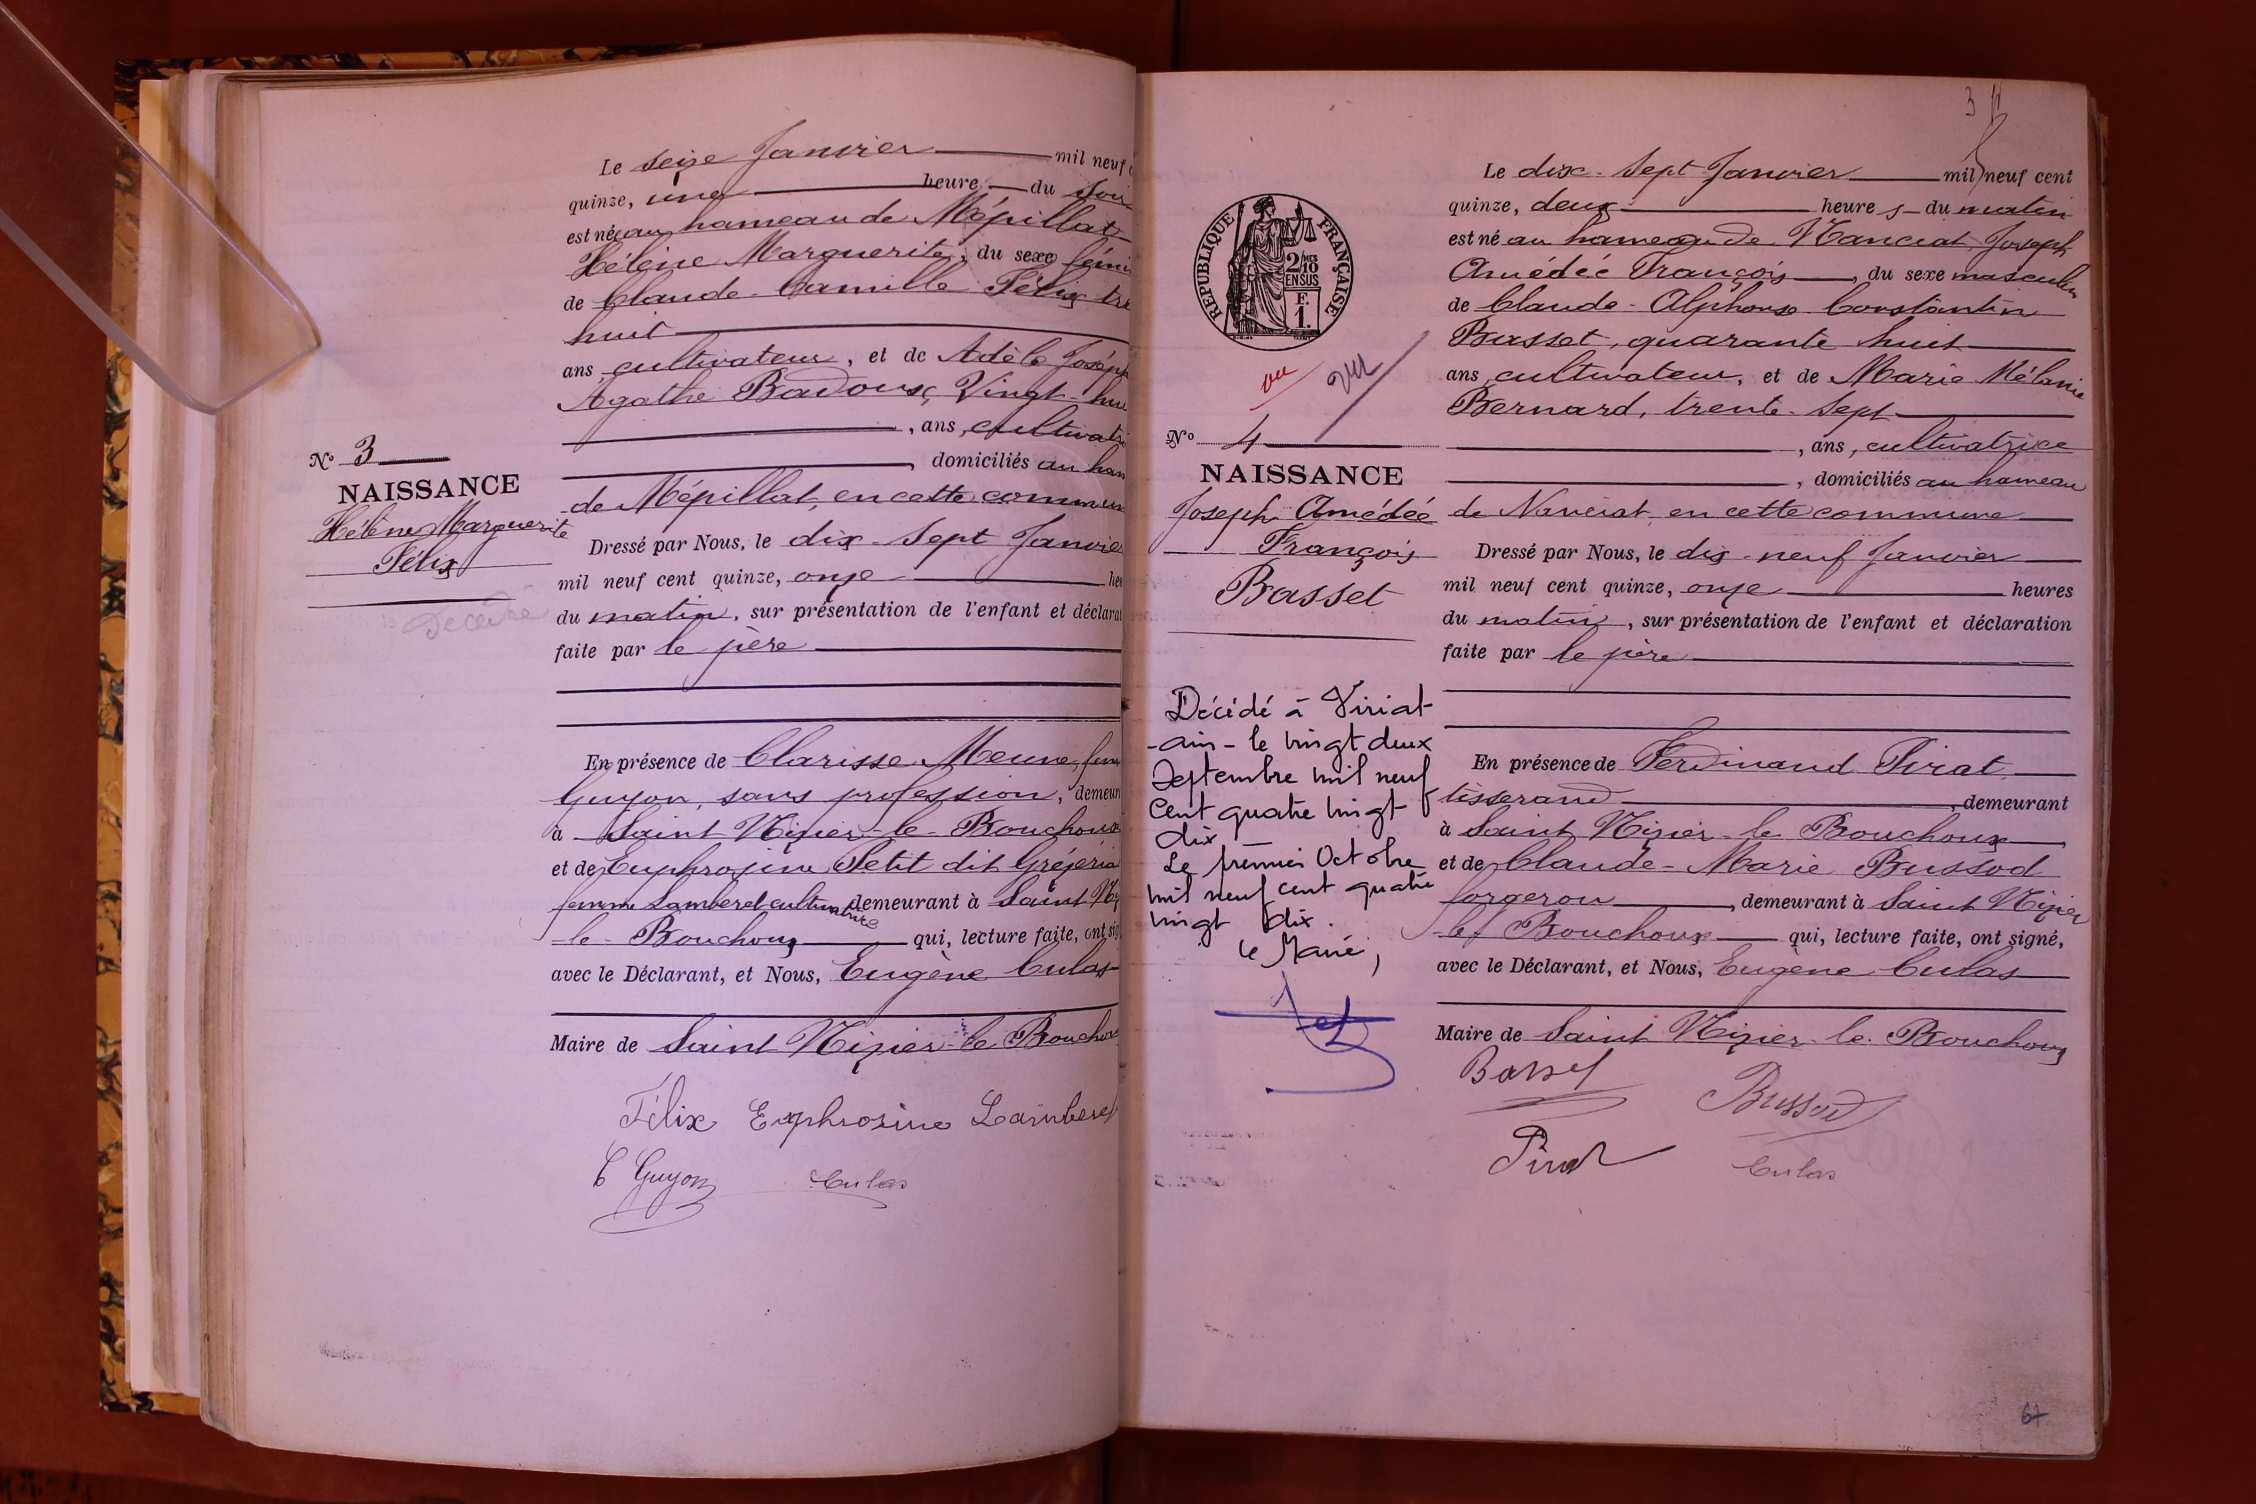 Le seize Janvier mil neuf
quinze, une heure du soir
est née au hameau de Mépillat
Hélène Marguerite, du sexe fémi
de Claude-Camille Félix tre
huit
ans, cultivateur, et de Adèle Joséph
Agathe Badoux, Vingt-hui
, ans, cultivatri
, domiciliés au ham
de Mépillat, en cette commun
Dressé par Nous, le dix-sept Janvier
mil neuf cent quinze, onze heu
du matin, sur présentation de l'enfant et déclarat
faite par le père
En présence de Clarisse Meune, fem
Guyon, sans profession, demeur
à Saint Nizier-le-Bouchoux
et de Euphrosine Petit dit Gréjeria
femme Lamberet cultivatrice demeurant à Saint Niz
-le-Bouchoux qui, lecture faite, ont sig
avec le Déclarant, et Nous, Eugène Culas
Maire de Saint Nizier-le-Bouchou
Félix Euphrosine Lamberet
C Guyon Culas
N° 3
NAISSANCE
Hélène Marguerite
Félix
Décédée
3
RÉPUBLIQUE FRANÇAISE
2/10 MES
EN SUS
F.
1.
vu vu
N° 4
NAISSANCE
Joseph Amédée
François
Basset
Décédé à Viriat
-ain- le vingt deux
Septembre mil neuf
Cent quatre vingt
dix
Le premier Octobre
mil neuf cent quatre
vingt dix.
Le Maire,
Le dix-sept Janvier mil neuf cent
quinze, deux heures du matin
est né au hameau de Nanciat, Joseph
Amédée François, du sexe masculin
de Claude-Alphonse Constantin
Basset, quarante huit
ans, cultivateur, et de Marie Mélanie
Bernard, trente-sept
, ans, cultivatrice
, domiciliés au hameau
de Nanciat, en cette commune
Dressé par Nous, le dix-neuf Janvier
mil neuf cent quinze, onze heures
du matin, sur présentation de l'enfant et déclaration
faite par le père
En présence de Ferdinand Pirat
tisserand, demeurant
à Saint Nizier-le Bouchoux
et de Claude-Marie Bussod
forgeron, demeurant à Saint Nizier
-le-Bouchoux qui, lecture faite, ont signé,
avec le Déclarant, et Nous, Eugène Culas
Maire de Saint Nizier-le-Bouchoux
Basset Bussod
Pirat Culas
67